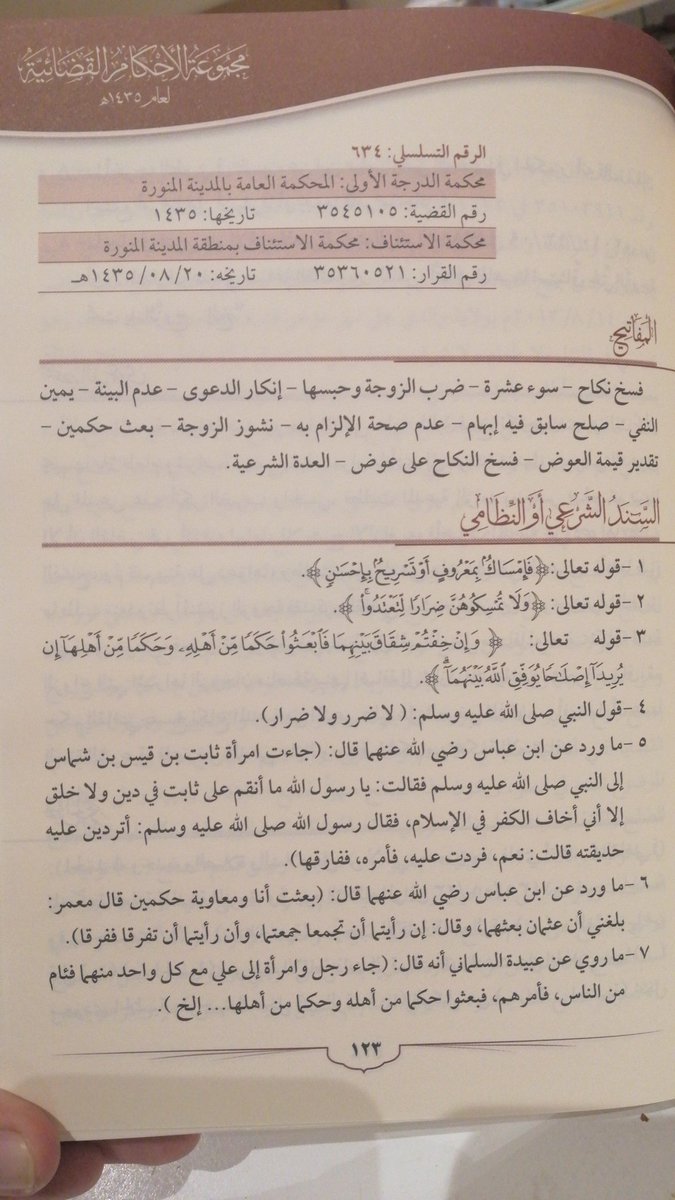 مجموعة الأحكام القضائية
لعام ١٤٣٥هـ
الرقم التسلسلي: ٦٣٤
محكمة الدرجة الأولى: المحكمة العامة بالمدينة المنورة
رقم القضية: ٣٥٤٥١٠٥ تاريخها: ١٤٣٥
محكمة الاستئناف: محكمة الاستئناف بمنطقة المدينة المنورة
رقم القرار: ٣٥٣٦٠٥٢١ تاريخه: ١٤٣٥/٠٨/٢٠هـ
المفاتيح
فسخ نكاح – سوء عشرة – ضرب الزوجة وحبسها – إنكار الدعوى – عدم البينة – يمين
النفي – صلح سابق فيه إبهام – عدم صحة الإلزام به – نشوز الزوجة – بعث حكمين –
تقدير قيمة العوض – فسخ النكاح على عوض – العدة الشرعية.
السَّنَدُ الشَّرْعِي أَوِ النِّظَامِي
١ –قوله تعالى: ﴿فَإِمْسَاكٌ بِمَعْرُوفٍ أَوْ تَسْرِيحٌ بِإِحْسَٰنٍ﴾.
٢ –قوله تعالى: ﴿وَلَا تُمْسِكُوهُنَّ ضِرَارًا لِّتَعْتَدُوا۟﴾.
٣ –قوله تعالى: ﴿وَإِنْ خِفْتُمْ شِقَاقَ بَيْنِهِمَا فَٱبْعَثُوا۟ حَكَمًا مِّنْ أَهْلِهِۦ وَحَكَمًا مِّنْ أَهْلِهَآ إِن
يُرِيدَآ إِصْلَٰحًا يُوَفِّقِ ٱللَّهُ بَيْنَهُمَآ﴾.
٤ –قول النبي صلى الله عليه وسلم: ( لا ضرر ولا ضرار).
٥ –ما ورد عن ابن عباس رضي الله عنهما قال: (جاءت امرأة ثابت بن قيس بن شماس
إلى النبي صلى الله عليه وسلم فقالت: يا رسول الله ما أنقم على ثابت في دين ولا خلق
إلا أني أخاف الكفر في الإسلام، فقال رسول الله صلى الله عليه وسلم: أتردين عليه
حديقته قالت: نعم، فردت عليه، فأمره، ففارقها).
٦ –ما ورد عن ابن عباس رضي الله عنهما قال: (بعثت أنا ومعاوية حكمين قال معمر:
بلغني أن عثمان بعثهما، وقال: إن رأيتما أن تجمعا جمعتما، وأن رأيتما أن تفرقا ففرقا).
٧ –ما روي عن عبيدة السلماني أنه قال: (جاء رجل وامرأة إلى علي مع كل واحد منهما فئام
من الناس، فأمرهم، فبعثوا حكما من أهله وحكما من أهلها... إلخ ).
١٢٣